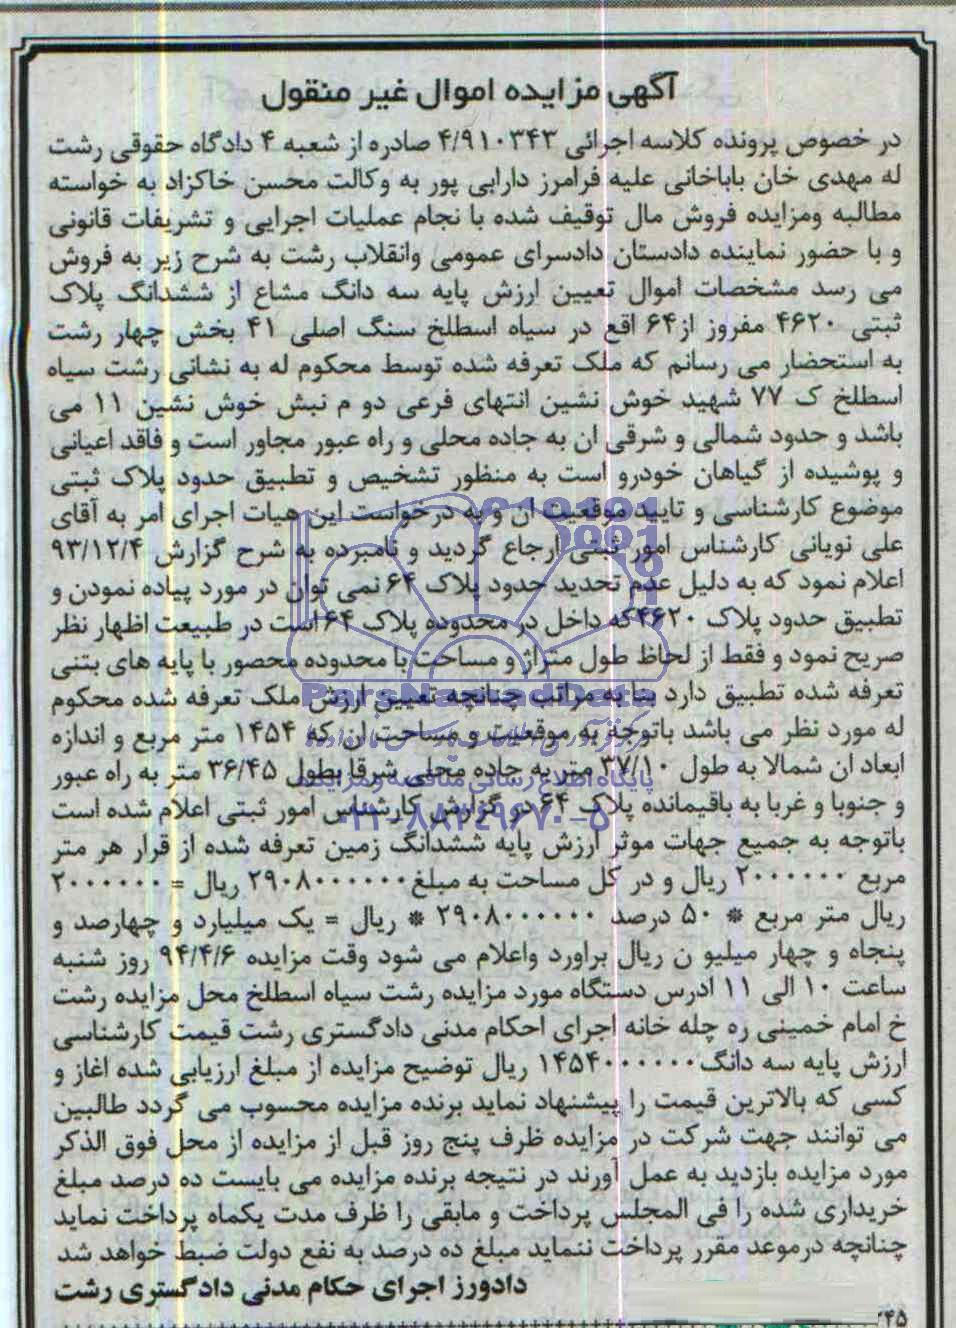 آگهی مزایده اموال غیر منقول
در خصوص پرونده کلاسه اجرائی ۴/۹۱۰۳۴۳ صادره از شعبه ۴ دادگاه حقوقی رشت
له مهدی خان باباخانی علیه فرامرز دارابی پور به وکالت محسن خاکزاد به خواسته
مطالبه ومزایده فروش مال توقیف شده با نجام عملیات اجرایی و تشریفات قانونی
و با حضور نماینده دادستان دادسرای عمومی وانقلاب رشت به شرح زیر به فروش
می رسد مشخصات اموال تعیین ارزش پایه سه دانگ مشاع از ششدانگ پلاک
ثبتی ۴۶۲۰ مفروز از۶۴ اقع در سیاه اسطلخ سنگ اصلی ۴۱ بخش چهار رشت
به استحضار می رسانم که ملک تعرفه شده توسط محکوم له به نشانی رشت سیاه
اسطلخ ک ۷۷ شهید خوش نشین انتهای فرعی دو م نبش خوش نشین ۱۱ می
باشد و حدود شمالی و شرقی ان به جاده محلی و راه عبور مجاور است و فاقد اعیانی
و پوشیده از گیاهان خودرو است به منظور تشخیص و تطبیق حدود پلاک ثبتی
موضوع کارشناسی و تایید موقعیت ان و به درخواست این هیات اجرای امر به آقای
علی نویانی کارشناس امور ثبتی ارجاع گردید و نامبرده به شرح گزارش ۹۳/۱۲/۴
اعلام نمود که به دلیل عدم تحدید حدود پلاک ۶۴ نمی توان در مورد پیاده نمودن و
تطبیق حدود پلاک ۴۶۲۰که داخل در محدوده پلاک ۶۴ است در طبیعت اظهار نظر
صریح نمود و فقط از لحاظ طول متراژ و مساحت با محدوده محصور با پایه های بتنی
تعرفه شده تطبیق دارد بنا به مراتب چنانچه تعیین ارزش ملک تعرفه شده محکوم
له مورد نظر می باشد باتوجه به موقعیت و مساحت ان که ۱۴۵۴ متر مربع و اندازه
ابعاد ان شمالا به طول ۳۷/۱۰ متر به جاده محلی شرقا بطول ۳۶/۴۵ متر به راه عبور
و جنوبا و غربا به باقیمانده پلاک ۶۴ در گزارش کارشناس امور ثبتی اعلام شده است
باتوجه به جمیع جهات موثر ارزش پایه ششدانگ زمین تعرفه شده از قرار هر متر
مربع ۲۰۰۰۰۰۰ ریال و در کل مساحت به مبلغ ۲۹۰۸۰۰۰۰۰۰ ریال = ۲۰۰۰۰۰۰
ریال متر مربع * ۵۰ درصد ۲۹۰۸۰۰۰۰۰۰ * ریال = یک میلیارد و چهارصد و
پنجاه و چهار میلیو ن ریال براورد واعلام می شود وقت مزایده ۹۴/۴/۶ روز شنبه
ساعت ۱۰ الی ۱۱ ادرس دستگاه مورد مزایده رشت سیاه اسطلخ محل مزایده رشت
خ امام خمینی ره چله خانه اجرای احکام مدنی دادگستری رشت قیمت کارشناسی
ارزش پایه سه دانگ ۱۴۵۴۰۰۰۰۰۰ ریال توضیح مزایده از مبلغ ارزیابی شده اغاز و
کسی که بالاترین قیمت را پیشنهاد نماید برنده مزایده محسوب می گردد طالبین
می توانند جهت شرکت در مزایده ظرف پنج روز قبل از مزایده از محل فوق الذکر
مورد مزایده بازدید به عمل آورند در نتیجه برنده مزایده می بایست ده درصد مبلغ
خریداری شده را فی المجلس پرداخت و مابقی را ظرف مدت یکماه پرداخت نماید
چنانچه درموعد مقرر پرداخت ننماید مبلغ ده درصد به نفع دولت ضبط خواهد شد
دادورز اجرای حکام مدنی دادگستری رشت
ParsNamadData
پایگاه اطلاع رسانی مناقصه و مزایده
۰۲۱-۸۸۳۴۹۶۷۰-۵